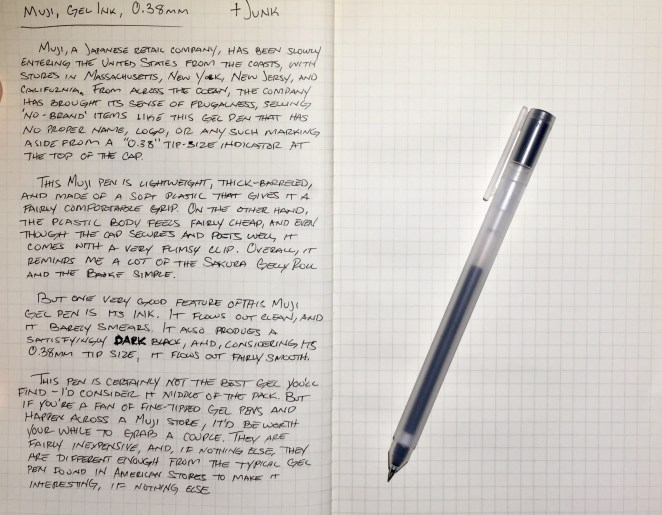 MUJI, GEL INK, 0.38MM + JUNK
MUJI, A JAPANESE RETAIL COMPANY, HAS BEEN SLOWLY
ENTERING THE UNITED STATES FROM THE COASTS, WITH
STORES IN MASSACHUSETTS, NEW YORK, NEW JERSY, AND
CALIFORNIA. FROM ACROSS THE OCEAN, THE COMPANY
HAS BROUGHT ITS SENSE OF FRUGALNESS, SELLING
'NO-BRAND' ITEMS LIKE THIS GEL PEN THAT HAS
NO PROPER NAME, LOGO, OR ANY SUCH MARKING
ASIDE FROM A "0.38" TIP-SIZE INDICATOR AT
THE TOP OF THE CAP.
THIS MUJI PEN IS LIGHTWEIGHT, THICK-BARRELED,
AND MADE OF A SOFT PLASTIC THAT GIVES IT A
FAIRLY COMFORTABLE GRIP. ON THE OTHER HAND,
THE PLASTIC BODY FEELS FAIRLY CHEAP, AND EVEN
THOUGH THE CAP SECURES AND POSTS WELL, IT
COMES WITH A VERY FLIMSY CLIP. OVERALL, IT
REMINDS ME A LOT OF THE SAKURA GELLY ROLL
AND THE SIMPLE.
BUT ONE VERY GOOD FEATURE OF THIS MUJI
GEL PEN IS ITS INK. IT FLOWS OUT CLEAN, AND
IT BARELY SMEARS. IT ALSO PRODUCES A
SATISFYINGLY DARK BLACK, AND, CONSIDERING ITS
0.38MM TIP SIZE, IT FLOWS OUT FAIRLY SMOOTH.
THIS PEN IS CERTAINLY NOT THE BEST GEL YOU'LL
FIND - I'D CONSIDER IT MIDDLE OF THE PACK. BUT
IF YOU'RE A FAN OF FINE-TIPPED GEL PENS AND
HAPPEN ACROSS A MUJI STORE, IT'D BE WORTH
YOUR WHILE TO GRAB A COUPLE. THEY ARE
FAIRLY INEXPENSIVE, AND, IF NOTHING ELSE, THEY
ARE DIFFERENT ENOUGH FROM THE TYPICAL GEL
PEN FOUND IN AMERICAN STORES TO MAKE IT
INTERESTING, IF NOTHING ELSE